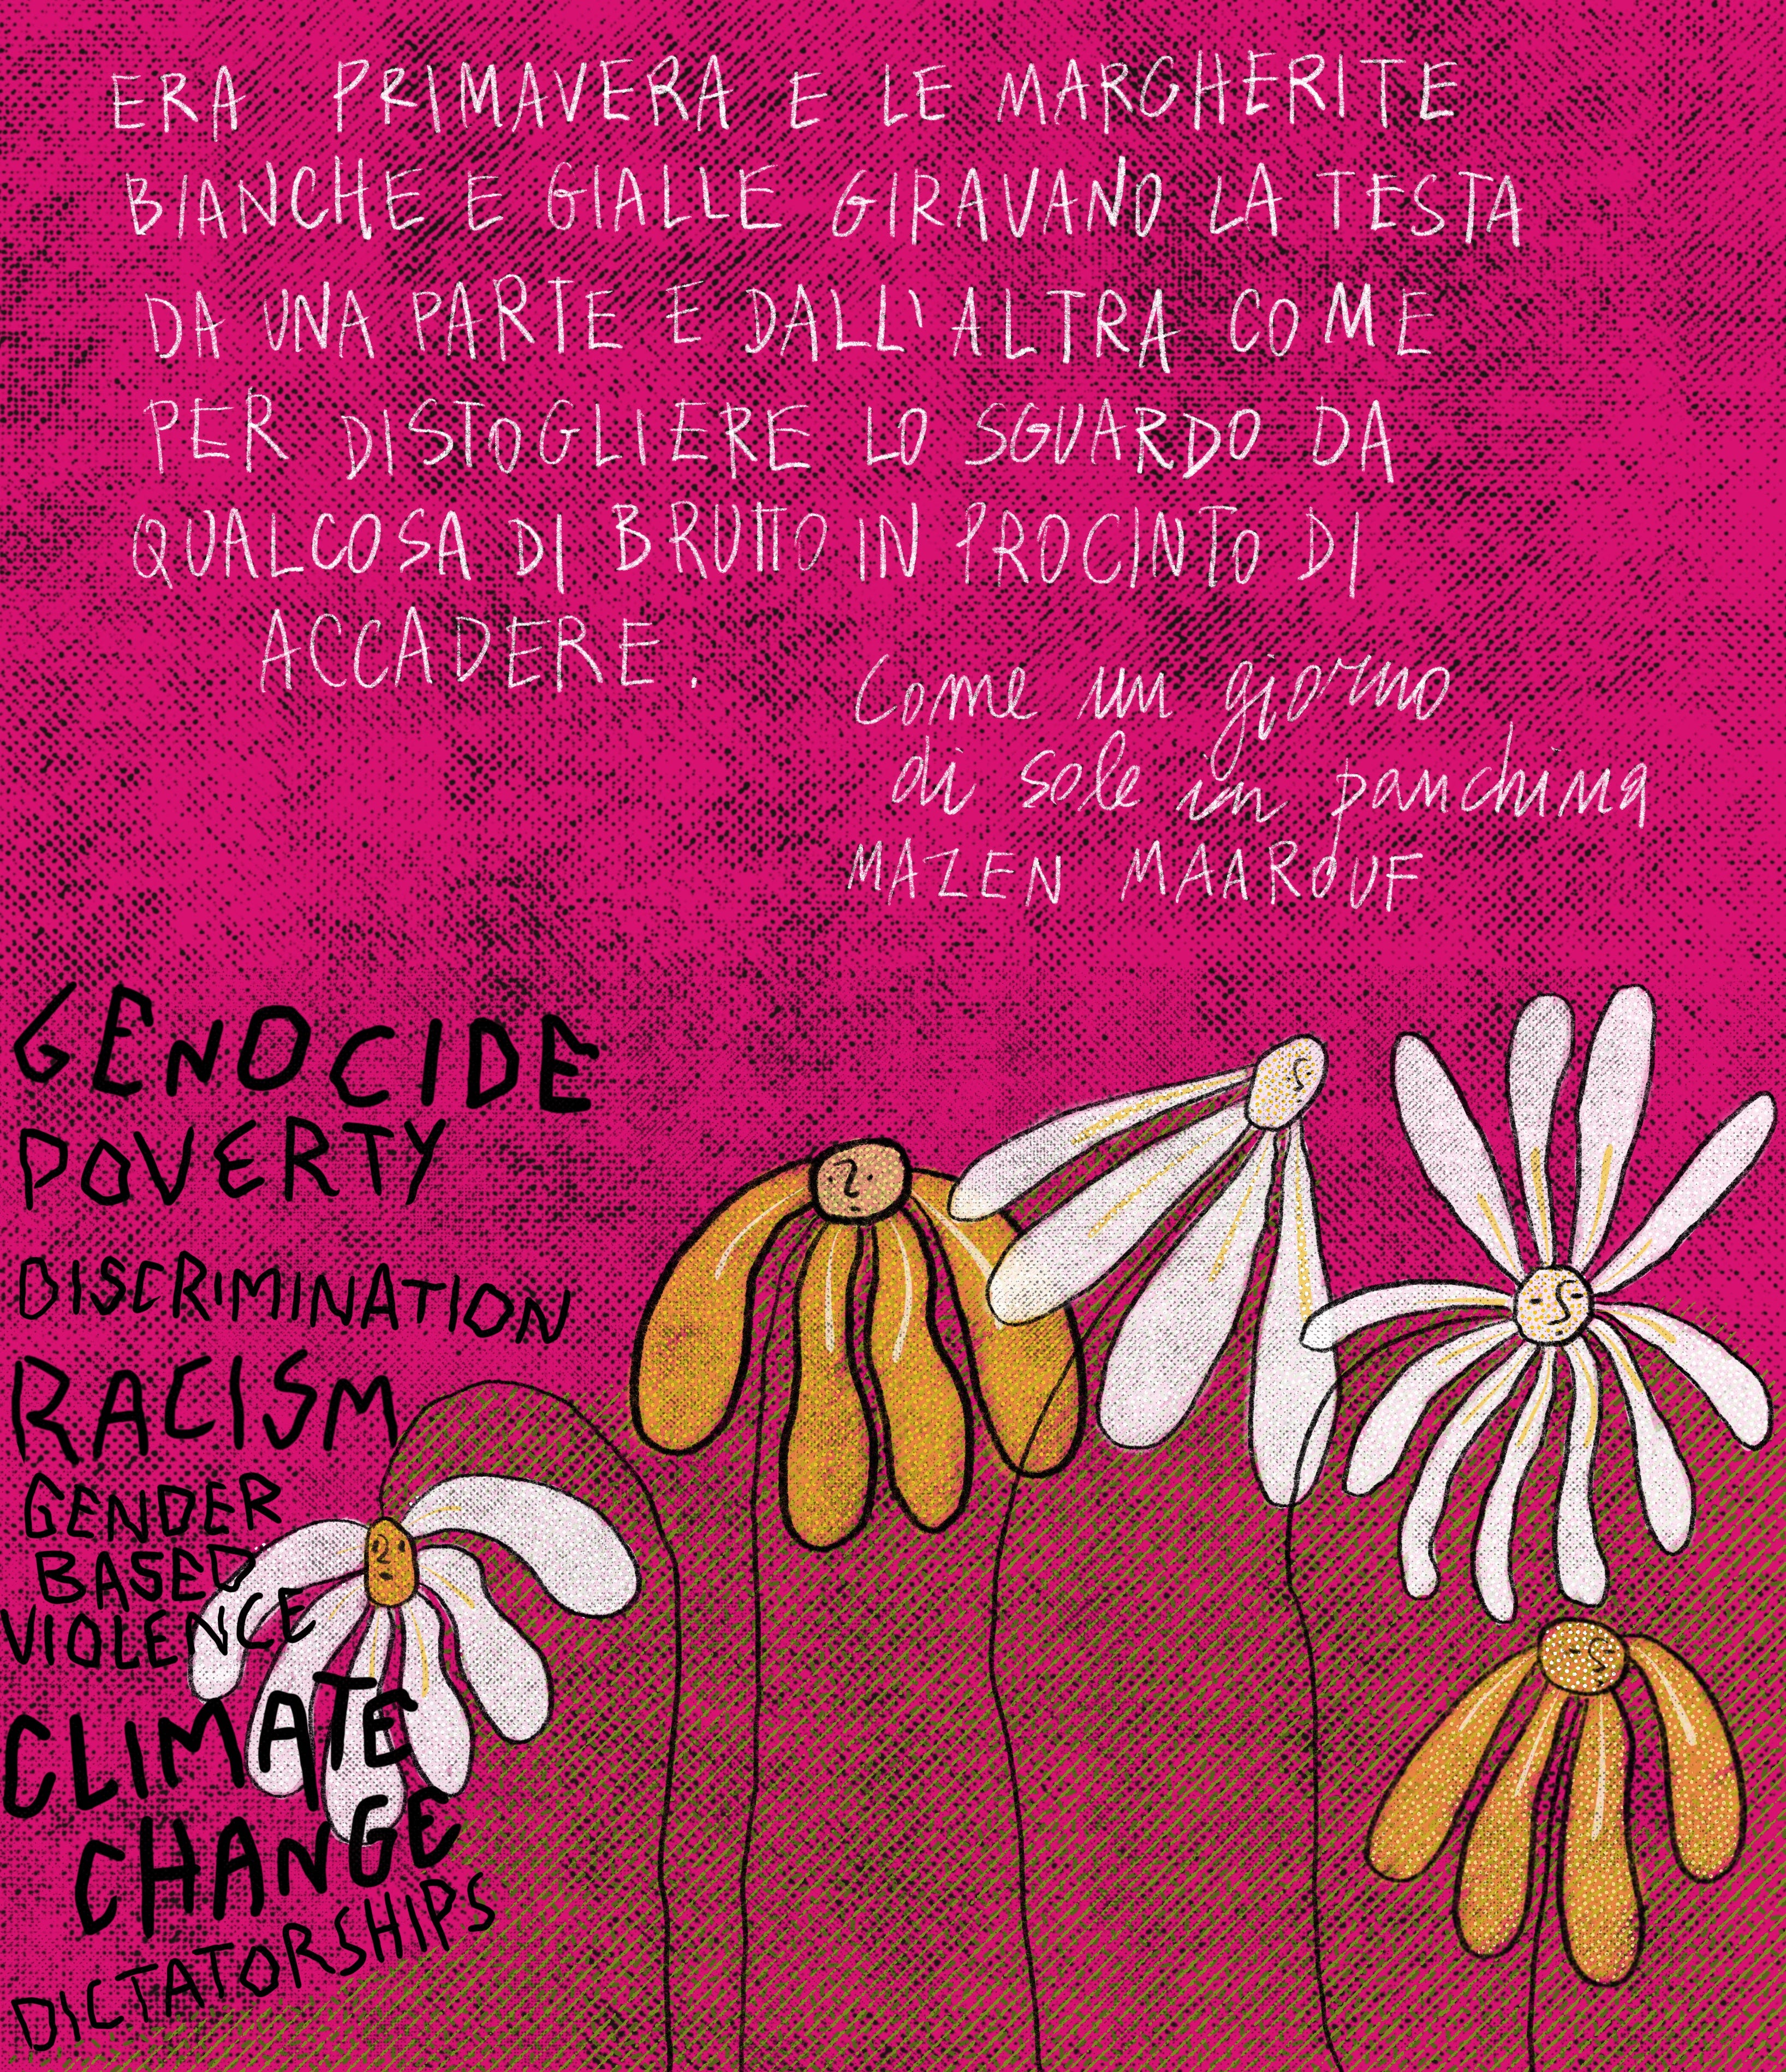 ERA PRIMAVERA E LE MARGHERITE
BIANCHE E GIALLE GIRAVANO LA TESTA
DA UNA PARTE E DALL'ALTRA COME
PER DISTOGLIERE LO SGUARDO DA
QUALCOSA DI BRUTTO IN PROCINTO DI
ACCADERE.
Come un giorno
di sole in panchina
MAZEN MAAROUF
GENOCIDE
POVERTY
DISCRIMINATION
RACISM
GENDER
BASED
VIOLENCE
CLIMATE
CHANGE
DICTATORSHIPS